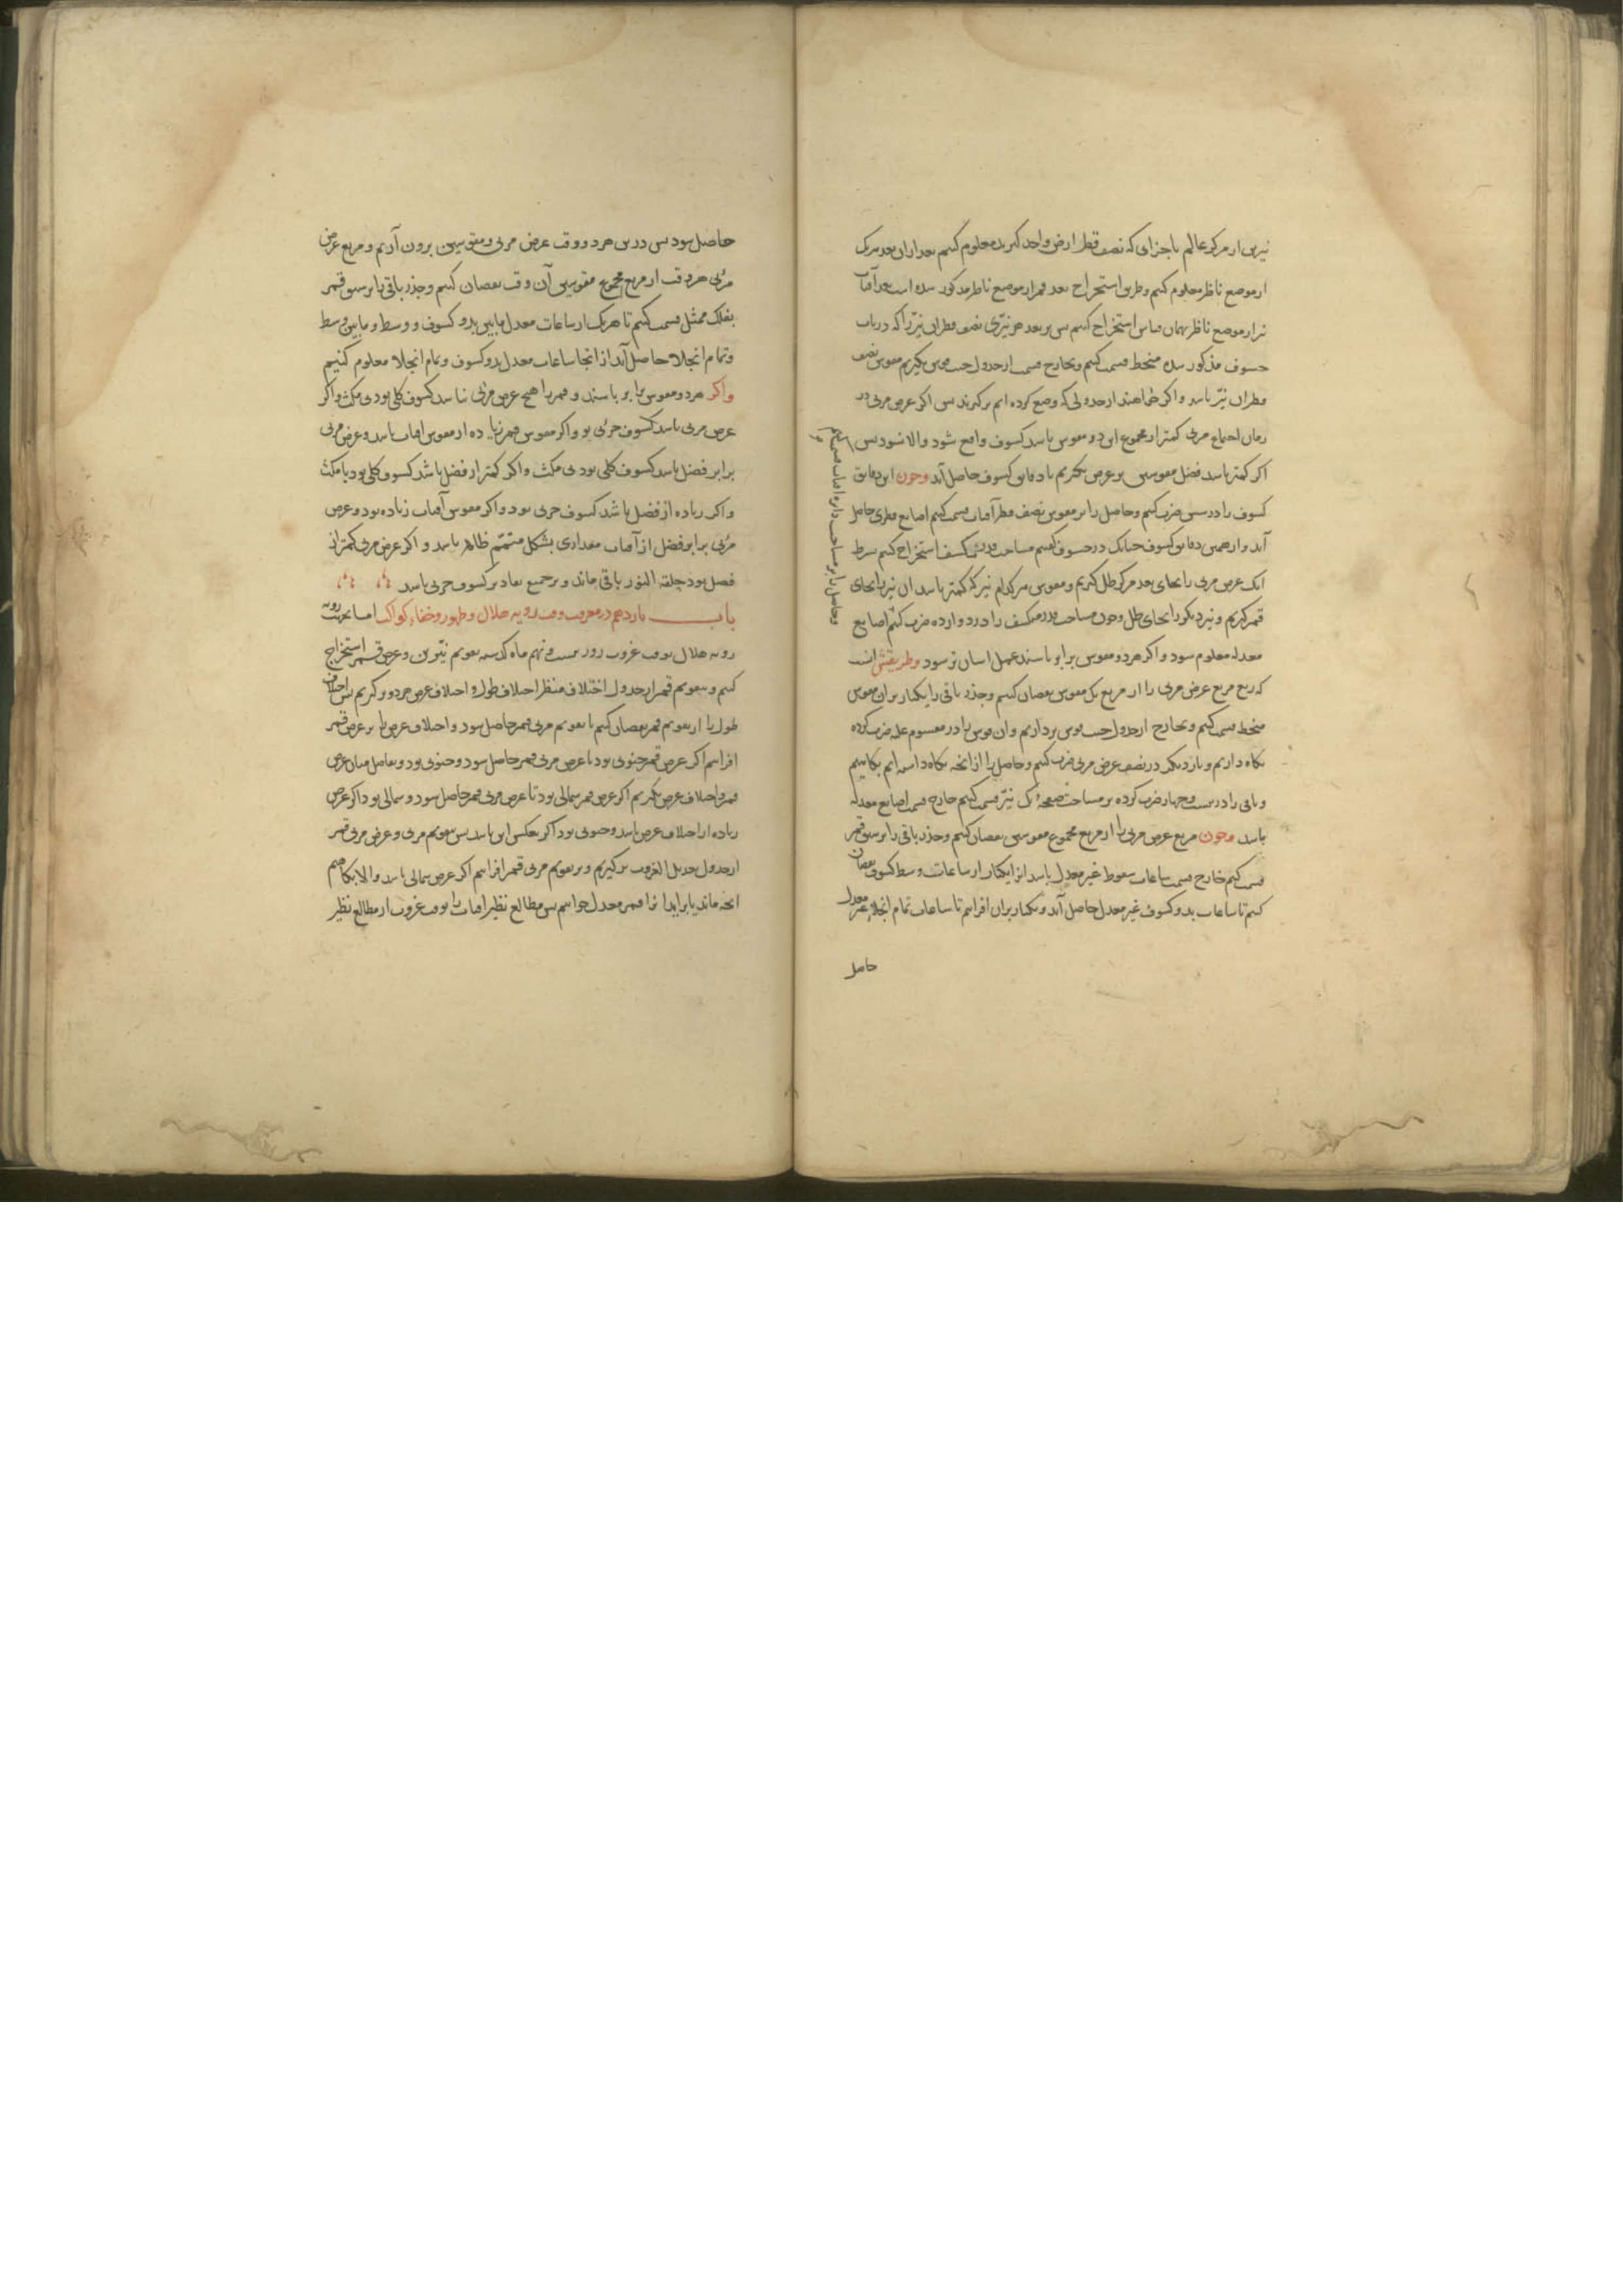 نیرین از مرکز عالم باجزایی که نصف قطر ارض واحد کیرند معلوم کنیم بعد ازان بعد هریک
از موضع ناظر معلوم کنیم و طریق استخراج بعد قمر از موضع ناظر مذکور شده است بعد آفتاب
نیز از موضع ناظر بهمان قیاس استخراج کنیم پس بر بعد هر نیّری نصف قطر آن نیّر را که در باب
خسوف مذکور شده منحط قسمت کنیم و بخارج قسمت از جدول جیب قوس بگیریم مقوس نصف
قطر آن نیّر باشد و اکر خواهند از جدولی که وضع کرده ایم بر کیرند پس اکر عرض مریی در
زمان اجتماع مریی کمتر از مجموع این دو مقوس باشد کسوف واقع شود والا نشود پس
اکر کمتر باشد فضل مقوسین بر عرض بگیریم تا دقایق کسوف حاصل آید وچون این دقایق
کسوف را در ستین ضرب کنیم وحاصل را بر مقوس نصف قطر آفتاب قسمت کنیم اصابع قطری حاصل
آید و از همین دقایق کسوف چنانک در خسوف کفتیم مساحت قدر منکسف استخراج کنیم بشرط
آنک عرض مریی را بجای بعد مرکز ظل کیریم و مقوس هرکدام نیر که کمتر باشد آن نیر را بجای
قمر کیریم و نیر دیکر را بجای ظل وچون مساحت قدر منکسف را در دوازده ضرب کنیم اصابع
وحاصل را بر مساحت دایره آفتاب قسمت کنیم
معدله معلوم شود و اکر هر دو مقوس برابر باشند عمل آسان تر شود وطریقش انست
که ربع مربع عرض مریی را از مربع یک مقوس نقصان کنیم وجذر باقی را یکبار بر آن مقوس
منحط قسمت کنیم و بخارج از جدول جیب قوس برداریم و آن قوس را در مقسوم علیه ضرب کرده
نکاه داریم و بار دیکر در نصف عرض مریی ضرب کنیم وحاصل را از انچه نکاه داشته ایم بکاهیم
و باقی را در بیست وچهار ضرب کرده بر مساحت صفحهٔ یک نیّر قسمت کنیم خارج قسمت اصابع معدله
باشد وچون مربع عرض مریی را از مربع مجموع مقوسین نقصان کنیم وجذر باقی را بر سبق قمر
قسمت کنیم خارج قسمت ساعات سقوط غیر معدل باشد انرا یکبار از ساعات وسط کسوف نقصان
کنیم تا ساعات بدو کسوف غیر معدل حاصل آید و یکبار بران افزاییم تا ساعات تمام انجلا غیر معدل
حاصل
حاصل شود پس درین هر دو وقت عرض مریی و مقوسین برون آریم و مربع عرض
مریی هر وقت از مربع مجموع مقوسین آن وقت نقصان کنیم وجذر باقی را بر سبق قمر
بفلک ممثل قسمت کنیم تا هریک از ساعات معدل مابین بدو کسوف و وسط و مابین وسط
وتمام انجلا حاصل آید از انجا ساعات معدل بدو کسوف و تمام انجلا معلوم کنیم
واکر هر دو مقوس برابر باشند و قمر را هیچ عرض مریی نباشد کسوف کلی بود بی مکث واکر
عرض مریی باشد کسوف جزئی بود واکر مقوس قمر زیاده از مقوس آفتاب باشد وعرض مریی
برابر فضل باشد کسوف کلی بود بی مکث واکر کمتر از فضل باشد کسوف کلی بود با مکث
واکر زیاده از فضل باشد کسوف جزیی بود واکر مقوس آفتاب زیاده بود و عرض
مریی برابر فضل از آفتاب مقداری بشکل متمّم ظاهر باشد و اکر عرض مریی کمتر از
فضل بود حلقه النور باقی ماند و بر جمیع تقادیر کسوف جزیی باشد
باب یازدهم در معرفت وقت رویه هلال وظهور وخفاء کواکب اما بجهت
رویه هلال بوقت غروب روز بیست و نهم ماه کذشته تقویم نیّرین وعرض قمر استخراج
کنیم و بتقویم قمر از جدول اختلاف منظر اختلاف طول و اختلاف عرض هر دو بر کیریم پس اختلاف
طول را از تقویم قمر نقصان کنیم تا تقویم مریی قمر حاصل شود و اختلاف عرض را بر عرض قمر
افزاییم اکر عرض قمر جنوبی بود تا عرض مریی قمر حاصل شود وجنوبی بود وتفاضل میان عرض
قمر واختلاف عرض بگیریم اکر عرض قمر شمالی بود تا عرض مریی قمر حاصل شود وشمالی بود اکر عرض
زیاده از اختلاف عرض باشد وجنوبی بود اکر بعکس این باشد پس بتقویم مریی وعرض مریی قمر
از جدول تعدیل الغروب بر کیریم و بر تقویم مریی قمر افزاییم اکر عرض شمالی باشد والا بکاهیم
انچه ماند یا بر آید انرا قمر معدل خوانیم پس مطالع نظیر آفتاب را بوقت غروب از مطالع نظیر